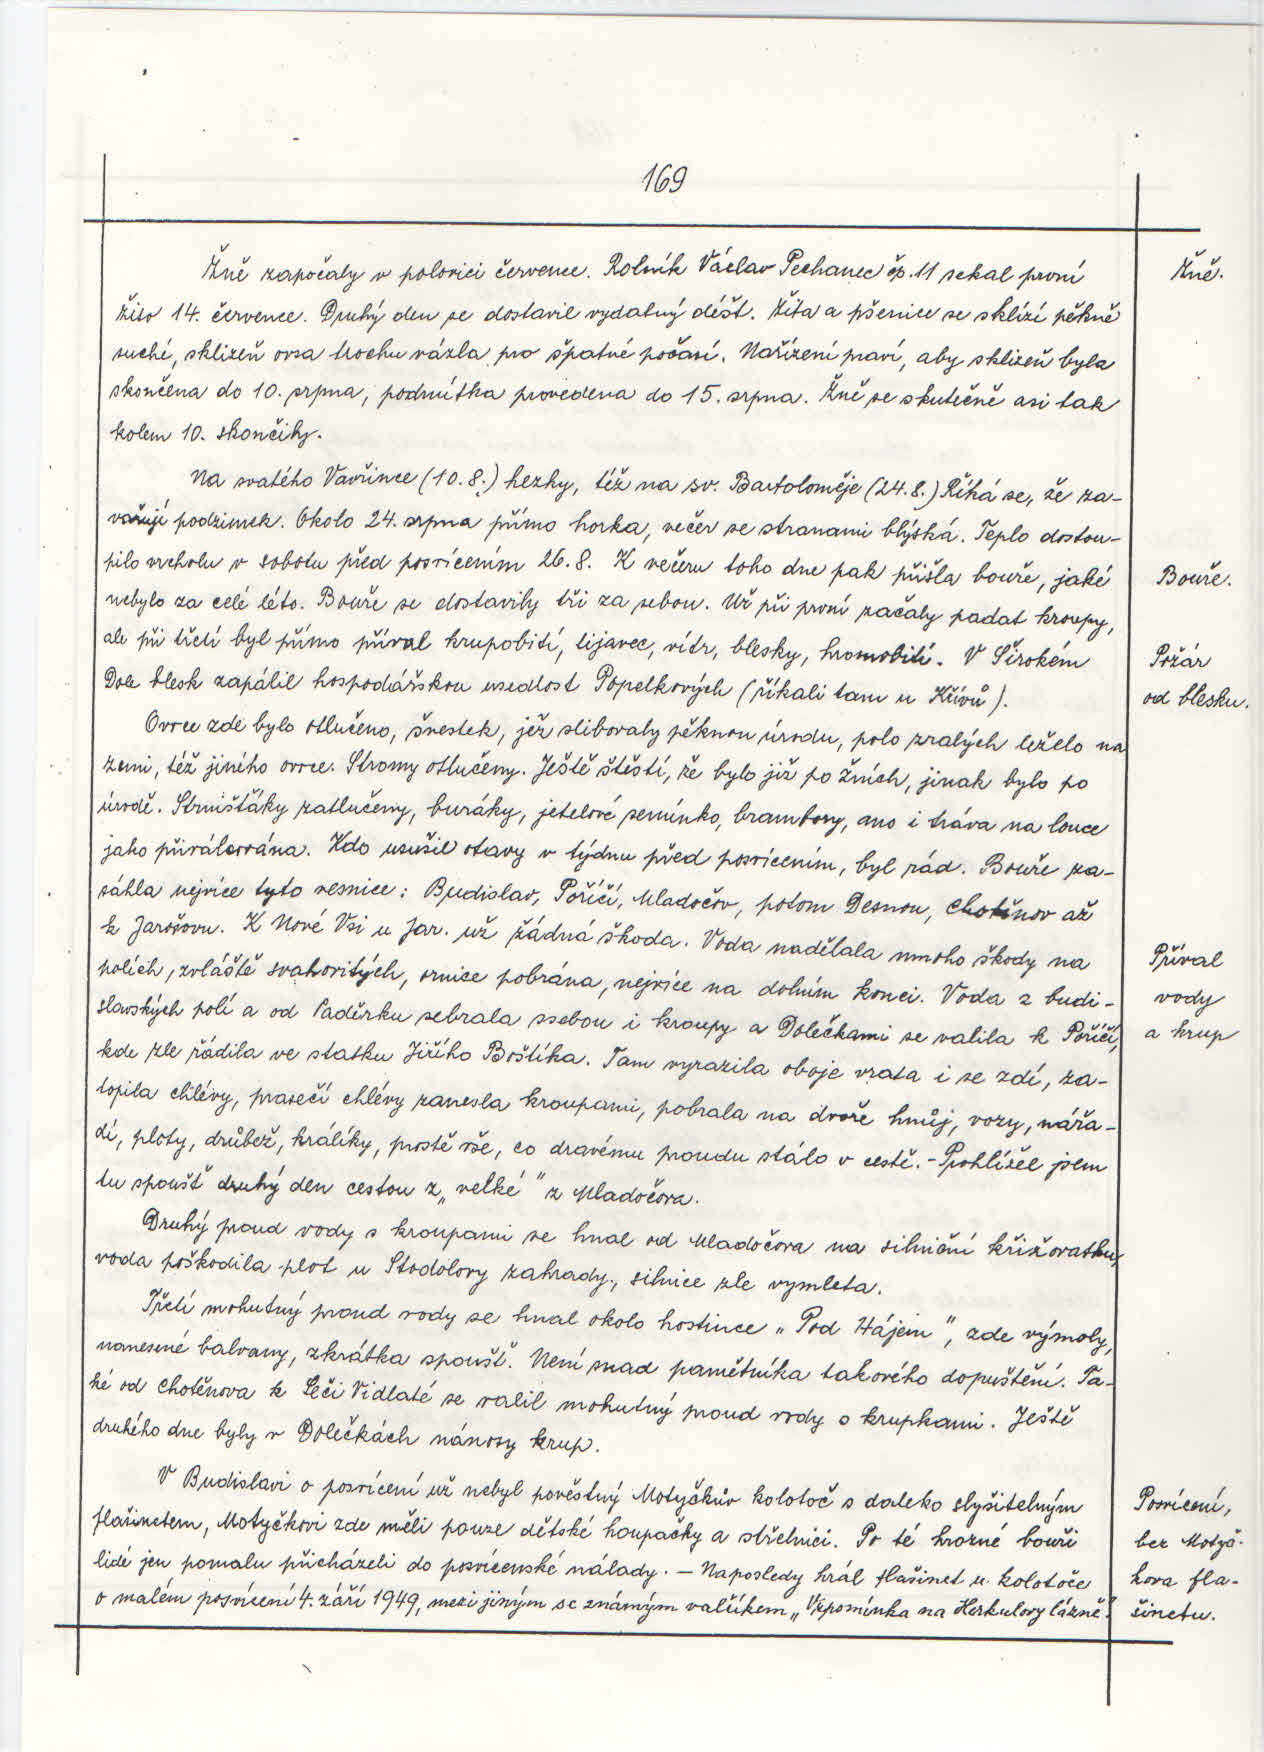 169
Žně započaly v polovici července. Rolník Václav Pechanec čp. 11 sekal první
Žně.
žito 14. července. Druhý den se dostavil vydatný déšť. Žita a pšenice se sklízí pěkně
suché, sklizeň ovsa trochu vázla pro špatné počasí. Nařízení praví, aby sklizeň byla
skončena do 10. srpna, podmítka provedena do 15. srpna. Žně se skutečně asi tak
kolem 10. skončily.
Na svatého Vavřince (10. 8.) hezky, též na sv. Bartoloměje (24. 8.) Říká se, že za-
vařují podzimek. Okolo 24. srpna přímo horka, večer se stranami blýská. Teplo dostou-
pilo vrcholu v sobotu před posvícením 26. 8. K večeru toho dne pak přišla bouře, jaké
Bouře.
nebylo za celé léto. Bouře se dostavily tři za sebou. Už při první začaly padat kroupy,
ale při třetí byl přímo příval krupobití, lijavec, vítr, blesky, hromobití. V Širokém
Požár
Dole blesk zapálil hospodářskou usedlost Popelkových (říkali tam u Křivů).
od blesku.
Ovoce zde bylo otlučeno, švestek, jež slibovaly pěknou úrodu, polo zralých leželo na
zemi, též jiného ovoce. Stromy otlučeny. Ještě štěstí, že bylo již po žních, jinak bylo po
úrodě. Strnišťáky zatlučeny, buráky, jetelové semínko, brambory, ano i tráva na louce
jako přiválována. Kdo usušil otavy v týdnu před posvícením, byl rád. Bouře za-
sáhla nejvíce tyto vesnice: Budislav, Poříčí, Mladočov, potom Desnou, Chotěnov až
k Jarošovu. K Nové Vsi u Jar. už žádná škoda. Voda nadělala mnoho škody na
Příval
polích, zvláště svahovitých, ornice pobrána, nejvíce na dolním konci. Voda z budi-
vody
slavských polí a od Paděrku sebrala ssebou i kroupy a Dolečkami se valila k Poříčí,
a krup
kde zle řádila ve statku Jiřího Boštíka. Tam vyrazila oboje vrata i se zdí, za-
topila chlévy, prasečí chlévy zanesla kroupami, pobrala na dvoře hnůj, vozy, nářa-
dí, ploty, drůbež, králíky, prostě vše, co dravému proudu stálo v cestě. - Prohlížel jsem
tu spoušť druhý den cestou z „velké" z Mladočova.
Druhý proud vody s kroupami se hnal od Mladočova na silniční křižovatku,
voda poškodila plot u Stodolovy zahrady, silnice zle vymleta.
Třetí mohutný proud vody se hnal okolo hostince „Pod Hájem", zde výmoly,
nanesené balvany, zkrátka spoušť. Není snad pamětníka takového dopuštění. Ta-
ké od Chotěnova k Seči Vidlaté se valil mohutný proud vody s krupkami. Ještě
druhého dne byly v Dolečkách nánosy krup.
V Budislavi o posvícení už nebyl pověstný Motyčkův kolotoč s daleko slyšitelným
Posvícení,
flašinetem, Motyčkovi zde měli pouze dětské houpačky a střelnici. Po té hrozné bouři
bez Motyč-
lidé jen pomalu přicházeli do posvícenské nálady. – Naposledy hrál flašinet u kolotoče
kova fla-
o malém posvícení 4. září 1949, mezi jiným se známým valčíkem „Vzpomínka na Herkulovy lázně."
šinetu.